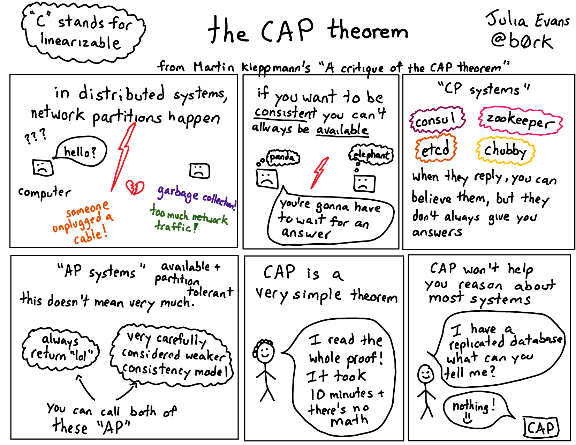 "C" stands for
linearizable
the CAP theorem
Julia Evans
@b0rk
from Martin Kleppmann's "A critique of the CAP theorem"
in distributed systems,
network partitions happen
???
hello?
computer
someone
unplugged a
cable!
garbage collection!
too much network
traffic?
if you want to be
consistent you can't
always be available
panda
elephant
you're gonna have
to wait for an
answer
"CP systems"
consul
zookeeper
etcd
chubby
when they reply, you can
believe them, but they
don't always give you
answers
"AP systems"
available +
partition
tolerant
this doesn't mean very much.
always
return "lol"
very carefully
considered weaker
consistency model!
you can call both of
these "AP"
CAP is a
very simple theorem
I read the
whole proof!
It took
10 minutes +
there's no
math
CAP won't help
you reason about
most systems
I have a
replicated database
what can you
tell me?
nothing!
CAP